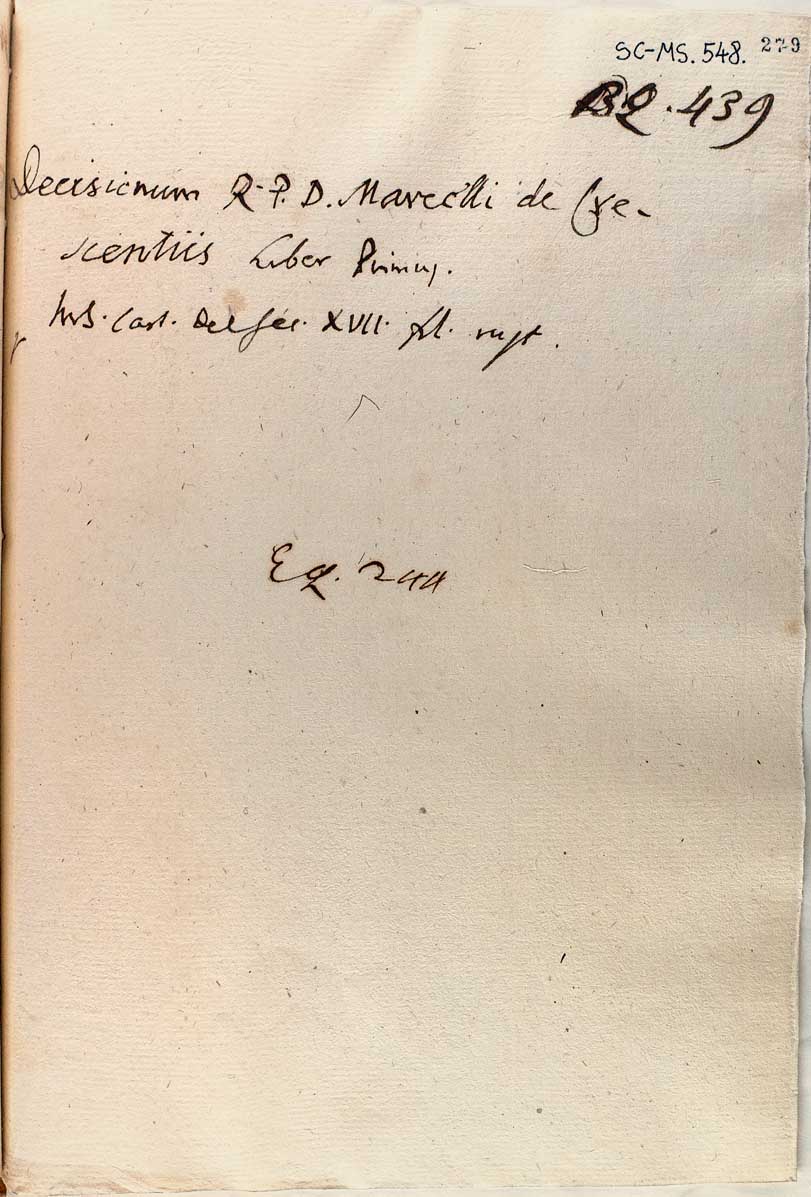 SC-MS. 548. 279
BQ. 439
Decisionum R. P. D. Marcelli de Cre-
scentiis Liber Primus.
MS. Cart. Del Sec. XVII.
Eq. 244